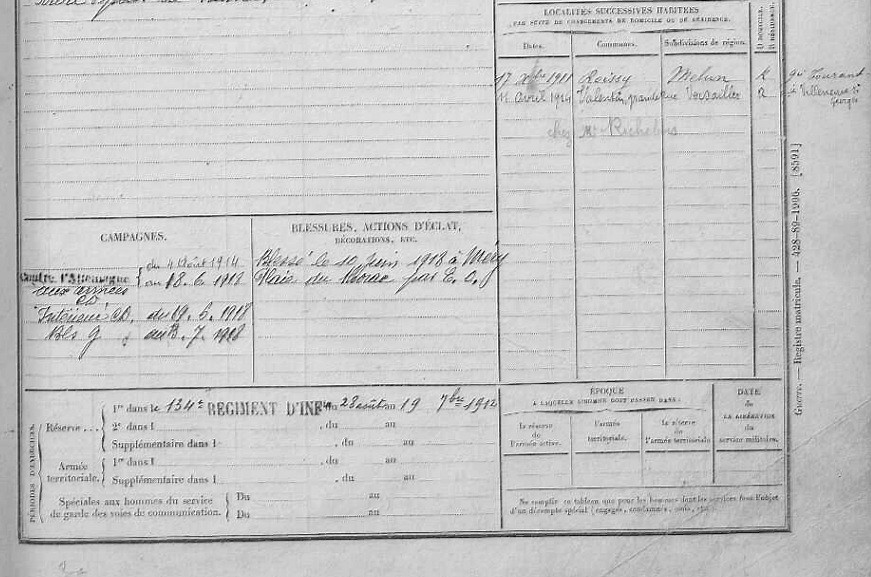 LOCALITÉS SUCCESSIVES HABITÉES
PAR SUITE DE CHANGEMENTS DE DOMICILE OU DE RÉSIDENCE.
Dates. Communes. Subdivisions de région. D DOMICILE. R RÉSIDENCE.
17 Xbre 1911 Roissy Melun R
Avril 1914 Valenton, grande rue Versailles R
Villeneuve St
Georges
chez Mr Richebois
Guerre. — Registre matricule. — 428-89-1906. [8591]
CAMPAGNES.
Contre l'Allemagne
du 4 Août 1914
au 18.6.1918
aux armées
CD
Intérieur CD. du 19.6.1918
Bles G au 3.7.1918
BLESSURES, ACTIONS D'ÉCLAT,
DÉCORATIONS, ETC.
Blessé le 10 juin 1918 à Méry
Plaie du thorax par E. O.
PÉRIODES D'EXERCICES.
Réserve ...
1re dans le 134e REGIMENT D'INFie du 23 août au 19 7bre 1912
2e dans l . du au
Supplémentaire dans l . du au
Armée
territoriale.
1re dans l . du au
Supplémentaire dans l . du au
Spéciales aux hommes du service
de garde des voies de communication.
Du au
Du au
ÉPOQUE
À LAQUELLE L'HOMME DOIT PASSER DANS.
la réserve
de
l'armée active.
l'armée
territoriale.
la réserve
de
l'armée territoriale
DATE
de
LA LIBÉRATION
du
service militaire.
Ne remplir ce tableau que pour les hommes dont les services font l'objet
d'un décompte spécial (engagés, condamnés, omis, etc.